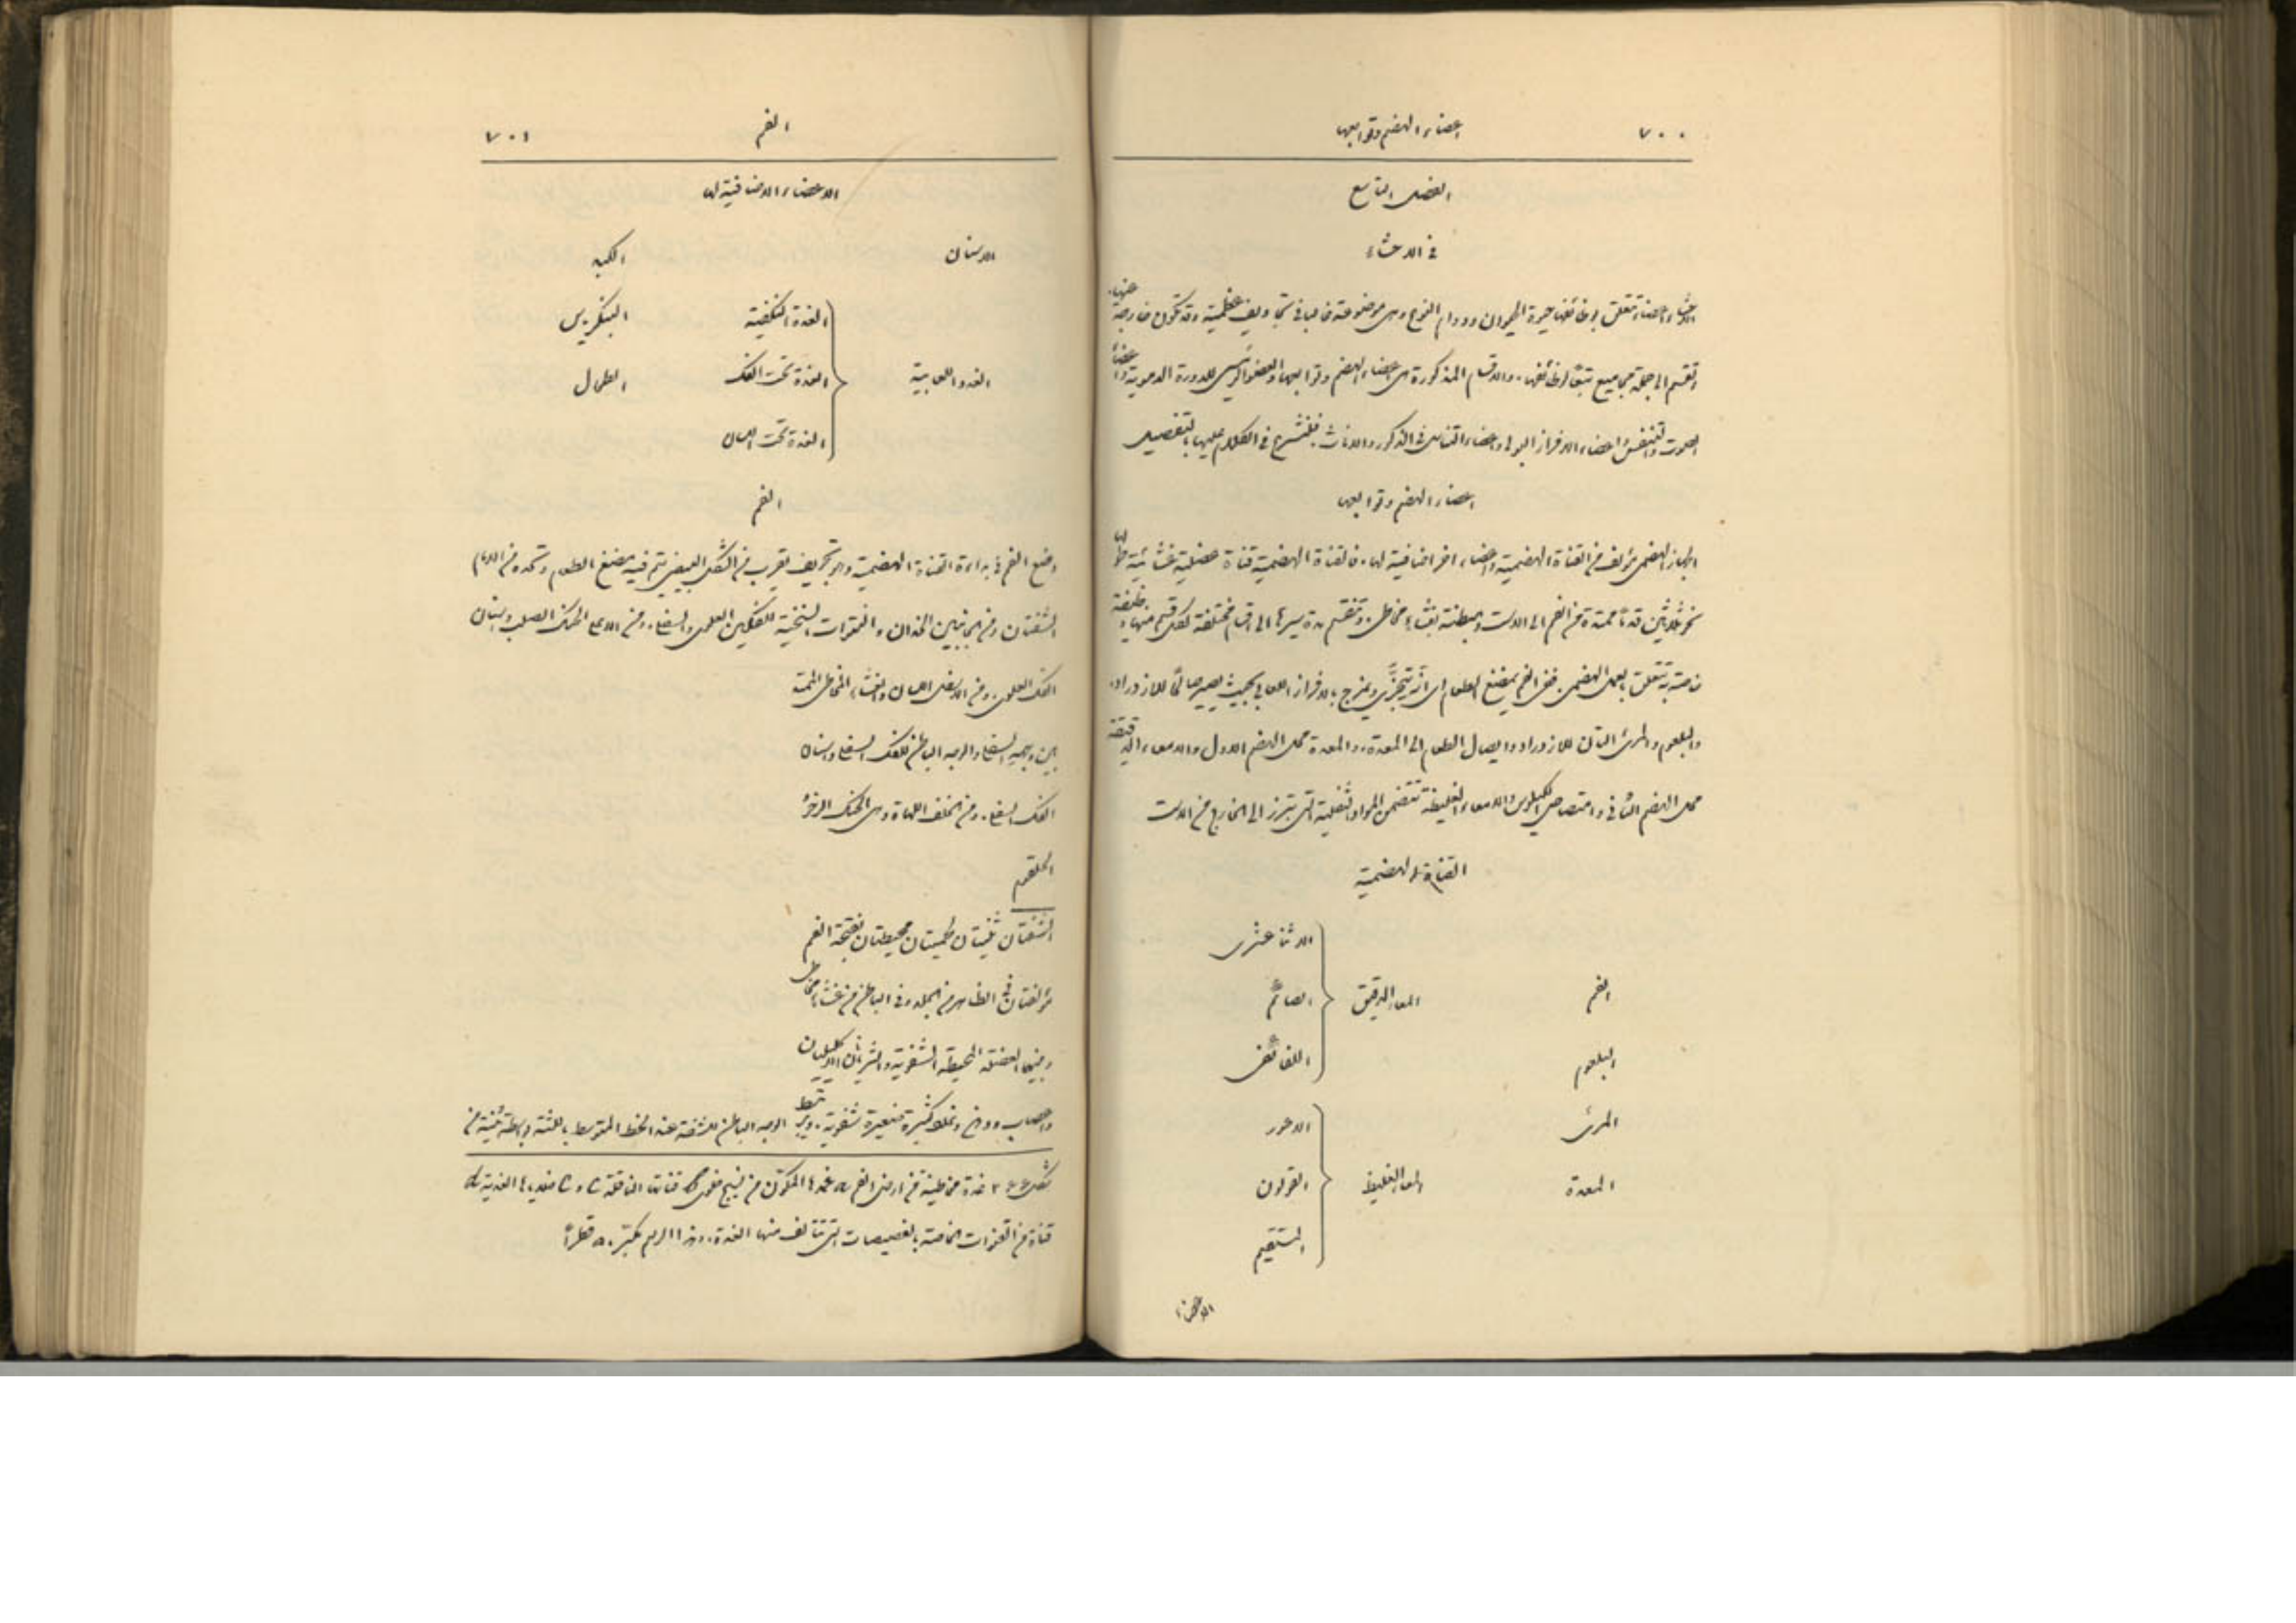 ٧٠٠
اعضاء الهضم وتوابعها
الفصل التاسع
في الاحشاء
الاحشاء اعضاء تتعلق بوظائفها حيوة الحيوان ودوام النوع وهي موضوعة غالبا في تجاويف عظمية وقد تكون خارجة عنها.
تقسم الى جملة مجاميع تبعًا لوظائفها. والاقسام المذكورة هي اعضاء الهضم وتوابعها والعضو الرئيسي للدورة الدموية واعضاء
الصوت والتنفس واعضاء الافراز البولي واعضاء التناسل في الذكور والاناث. فلنشرع في الكلام عليها بالتفصيل
اعضاء الهضم وتوابعها
الجهاز الهضمي مؤلف من القناة الهضمية واعضاء اخر اضافية لها. فالقناة الهضمية قناة عضلية غشائية طولها
نحو ثلاثين قدمًا ممتدة من الفم الى الاست ومبطنة بغشاء مخاطي. وتنقسم مدة سيرها الى اقسام مختلفة لكل قسم منها وظيفة
خاصة به تتعلق بالعمل الهضمي. ففي الفم يمضغ الطعام اي انه يتجزّى ويمزج بالافراز اللعابي بحيث يصير صالحًا للازدراد.
والبلعوم والمرئ آلتان للازدراد وايصال الطعام الى المعدة. والمعدة محل الهضم الاول والامعاء الدقيقة
محل الهضم الثاني وامتصاص الكيلوس والامعاء الغليظة تتضمن المواد الثفلية التي تبرز الى الخارج من الاست
القناة الهضمية
الفم
البلعوم
المرئ
المعدة
المعا الدقيق
الاثنا عشرى
الصائم
اللفائفى
المعا الغليظ
الاعور
القولون
المستقيم
الاعضاء
الفم
٧٠١
الاعضاء الاضافية لها
الاسنان
الكبد
الغدد اللعابية
الغدة النكفية
الغدة تحت الفك
الغدة تحت اللسان
البنكرياس
الطحال
وضع الفم في بداءة القناة الهضمية وهو تجويف يقرب من الشكل البيضي يتم فيه مضغ الطعام وتحده من الامام
الشفتان ومن الجانبين الخدان والنتوات السنخية للفكين العلوي والسفلي. ومن الاعلى الحنك الصلب واسنان
الفك العلوي. ومن الاسفل اللسان والغشاء المخاطي الممتد
بين وجهه السفلي والوجه الباطن للفك السفلي واسنان
الفك السفلي. ومن الخلف اللهاة وهي الحنك الرخو
الحلقوم
الشفتان ثنيتان لحميتان محيطتان بفتحة الفم
مؤلفتان في الظاهر من الجلد وفي الباطن من غشاء مخاطي
وبينهما العضلة المحيطة الشفوية والشريانان الاكليليان
واعصاب ودهن وغدد كثيرة صغيرة شفوية. ويرتبط الوجه الباطن للشفة عند الخط المتوسط باللثة بواسطة ثنية من
شكل ٢٤٤ غدة مخاطية من ارض الفم a غمدها المكوّن من نسيج خلوي b قناتها الناقلة c و c فصيصاتها الغددية d
قناة من القنوات الخاصة بالفصيصات التي تتالف منها الغدة. وهذا الرسم مكبّر ٥٠ قطرًا